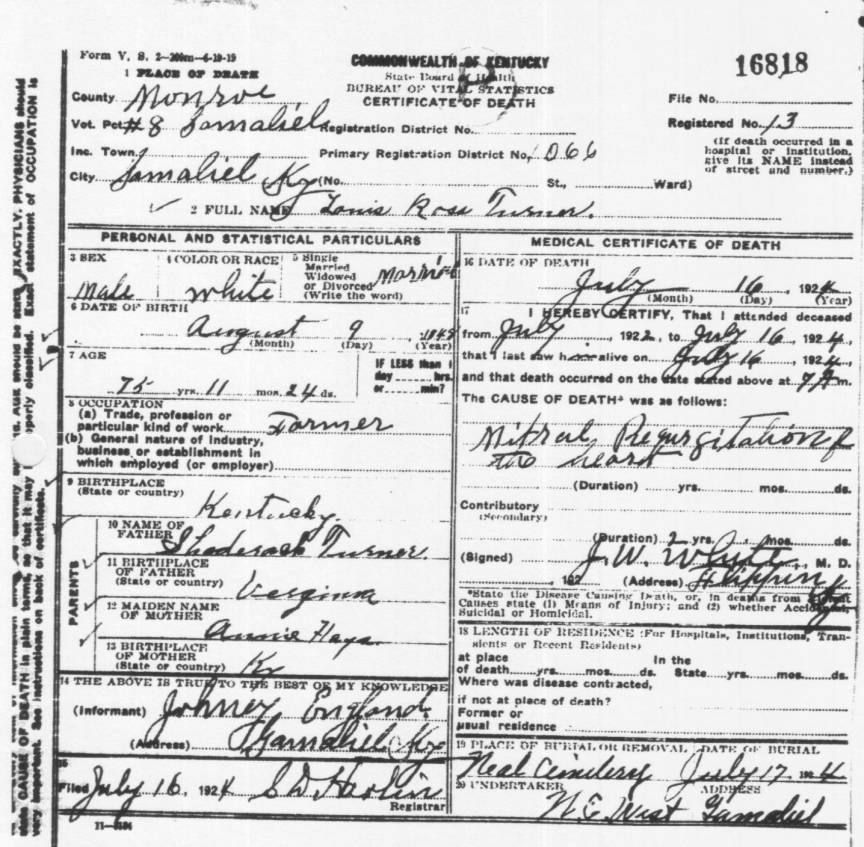 Form V. S. 2—200m—6-19-19
COMMONWEALTH OF KENTUCKY
State Board of Health
BUREAU OF VITAL STATISTICS
CERTIFICATE OF DEATH
16818
1 PLACE OF DEATH
County Monroe
File No.
Vot. Pct #8 Gamaliel Registration District No.
Registered No. 13
(If death occurred in a hospital or institution, give its NAME instead of street and number.)
Inc. Town Primary Registration District No. 1066
City Gamaliel Ky (No. St., Ward)
2 FULL NAME Louis Ross Turner.
PERSONAL AND STATISTICAL PARTICULARS
3 SEX
Male
4 COLOR OR RACE
White
5 Single
Married
Widowed
or Divorced
(Write the word)
Married
6 DATE OF BIRTH
August 9
(Month) (Day) (Year)
7 AGE
75 yrs. 11 mos. 24 ds.
IF LESS than 1
day hrs.
or min?
8 OCCUPATION
(a) Trade, profession or
particular kind of work Farmer
(b) General nature of Industry,
business or establishment in
which employed (or employer)
9 BIRTHPLACE
(State or country) Kentucky.
PARENTS
10 NAME OF
FATHER Shaderack Turner.
11 BIRTHPLACE
OF FATHER
(State or country) Verginia
12 MAIDEN NAME
OF MOTHER
Annie Hays
13 BIRTHPLACE
OF MOTHER
(State or country) Ky
14 THE ABOVE IS TRUE TO THE BEST OF MY KNOWLEDGE
(Informant) Johney England
(Address) Gamaliel Ky
15
Filed July 16, 1924
Registrar
MEDICAL CERTIFICATE OF DEATH
16 DATE OF DEATH
July 16, 1924
(Month) (Day) (Year)
17 I HEREBY CERTIFY, That I attended deceased
from July, 1922, to July 16, 1924,
that I last saw alive on July 16, 1924,
and that death occurred on the date stated above at m.
The CAUSE OF DEATH* was as follows:
Mitral Regurgitation of
the heart
(Duration) yrs. mos. ds.
Contributory
(Secondary)
(Duration) 2 yrs. mos. ds.
(Signed) J.W. White, M. D.
, 192 (Address) Flippin
*State the Disease Causing Death, or, in deaths from Violent
Causes state (1) Means of Injury; and (2) whether Accidental,
Suicidal or Homicidal.
18 LENGTH OF RESIDENCE (For Hospitals, Institutions, Tran-
sients or Recent Residents)
at place In the
of death yrs. mos. ds. State yrs. mos. ds.
Where was disease contracted,
if not at place of death?
Former or
usual residence
19 PLACE OF BURIAL OR REMOVAL DATE OF BURIAL
Neal Cemetery July 17, 1924
20 UNDERTAKER ADDRESS
N.E. West Gamaliel
11—3184